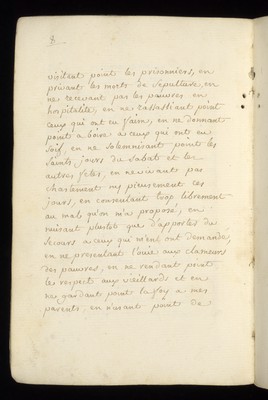 8
visitent point les prisonniers, en
privant les morts de sepulture, en
ne recevant pas les pauvres en
hospitalité, en ne rassassiant point
ceux qui ont eu faim, en ne donnant
point a boire a ceux qui ont eu
soif, en ne solemnisant point les
saints jours du sabat et les
autres fetes, en ne vivant pas
chastement ny pieusement ces
jours, en consentant trop librement
au mal qu'on m'a proposé, en
nuisant plustot que d'apporter du
secours a ceux qui m'en ont demandé,
en ne presentant l'ouie aux clameurs
des pauvres, en ne rendant point
les respect aux vieillards et en
ne gardant point la foy a mes
parents, en n'usant point de